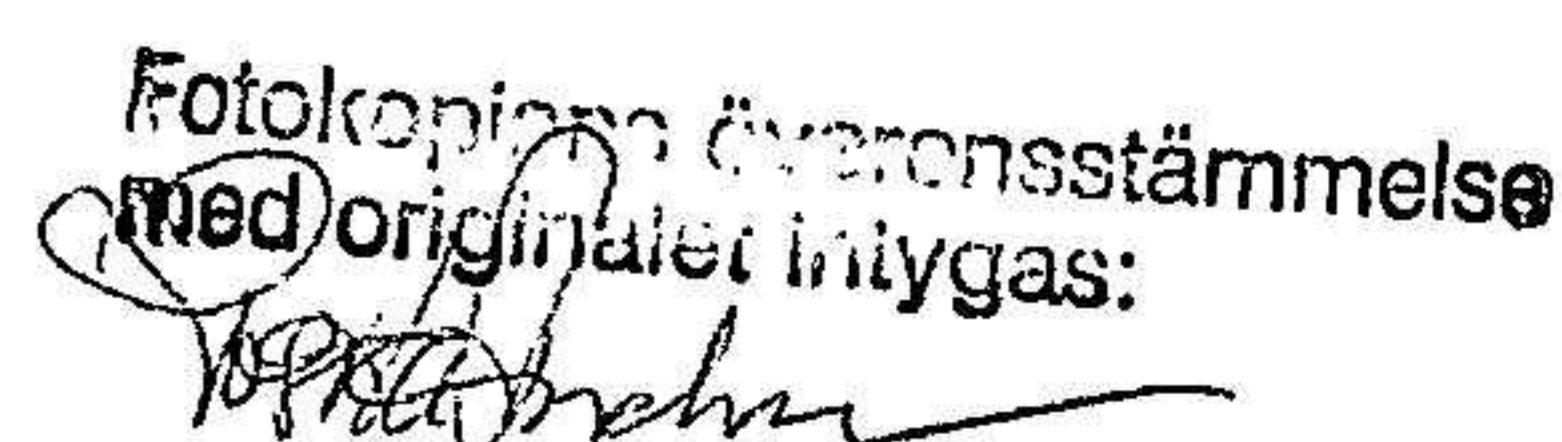 Fotokopians överensstämmelse
med originalet intygas: